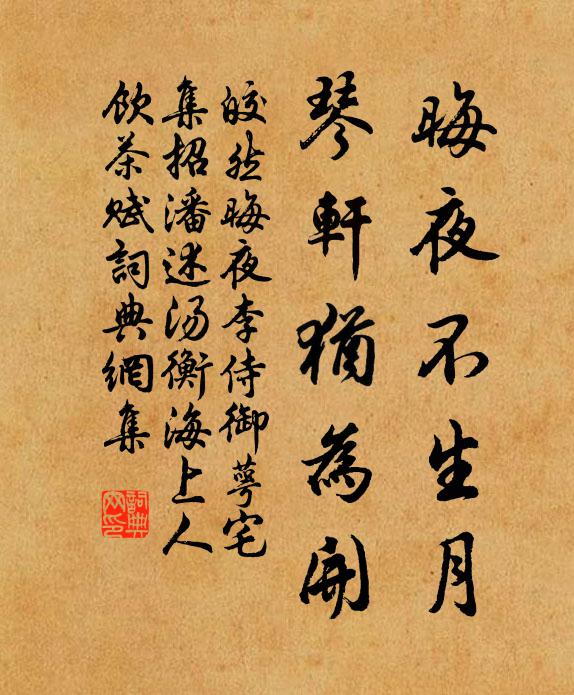 晦夜不生月
琴軒猶為開
皎然晦夜李侍御萼宅
集招潘述湯衡海上人
飲茶賦詞典網集
詞典
网印